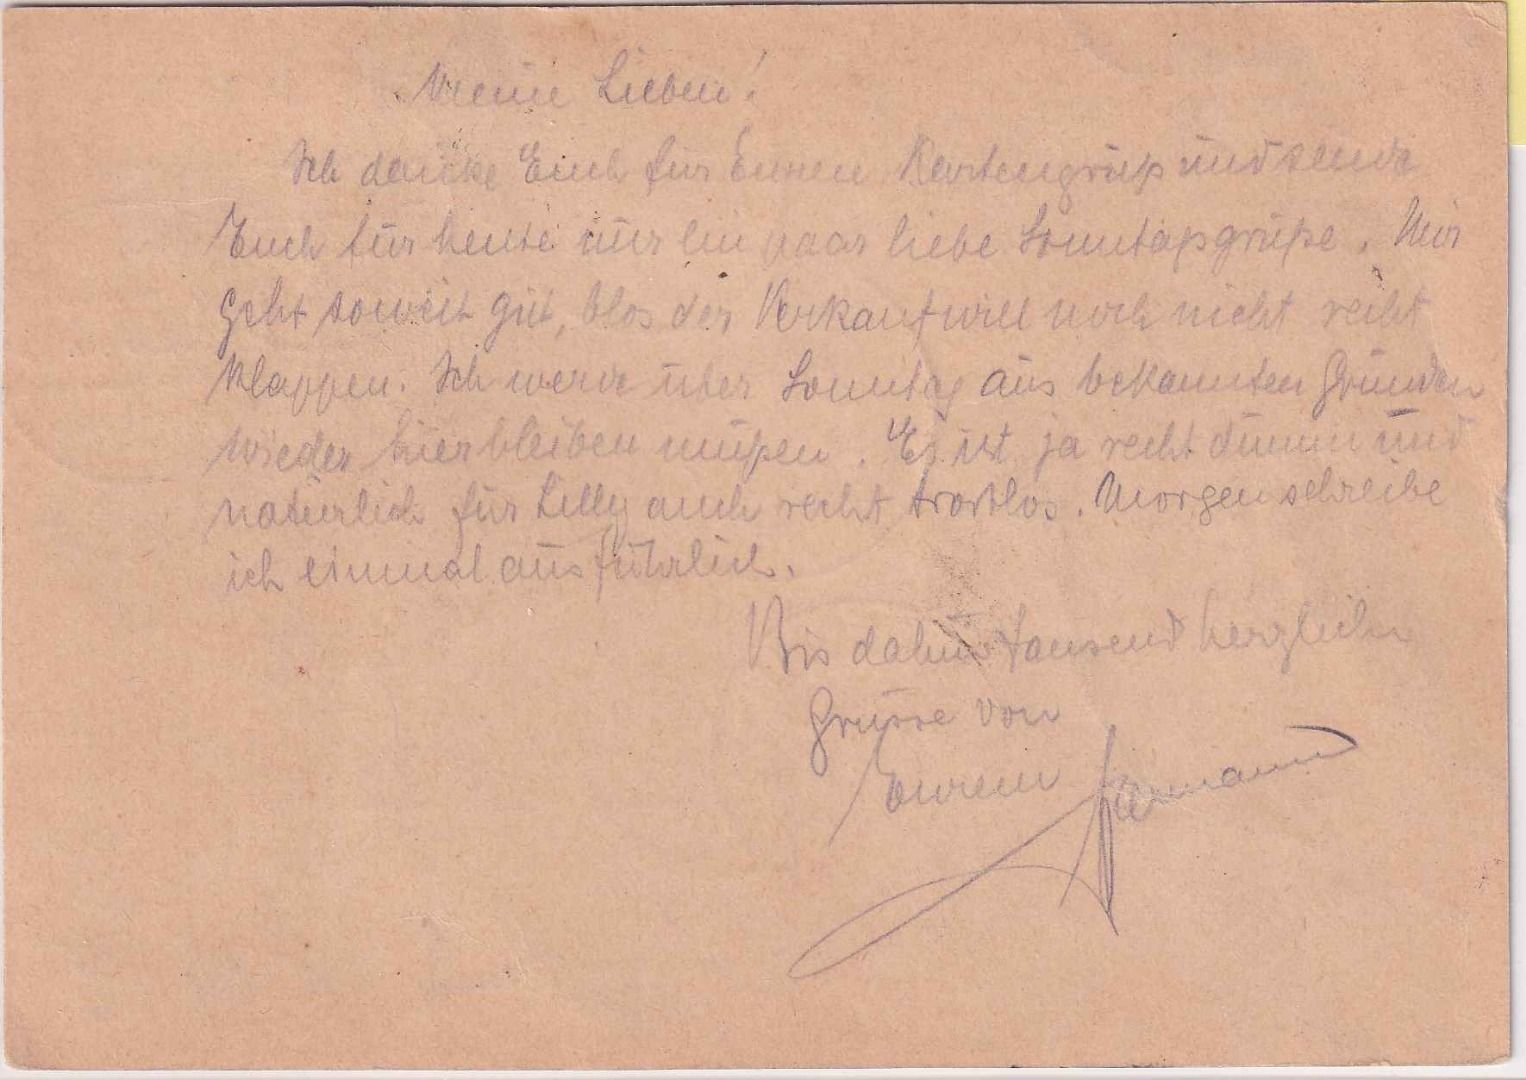 Meine Lieben!
Ich danke Euch für Euren Kartengruß und sende
Euch für heute nur ein paar liebe Sonntagsgrüße. Mir
geht soweit gut, blos der Verkauf will noch nicht recht
klappen. Ich werde über Sonntag aus bekannten Gründen
wieder hierbleiben müßen. Es ist ja recht dumm und
natürlich für Lilly auch recht trostlos. Morgen schreibe
ich einmal ausführlich.
Bis dahin tausend herzliche
Grüsse von
Eurem Hermann